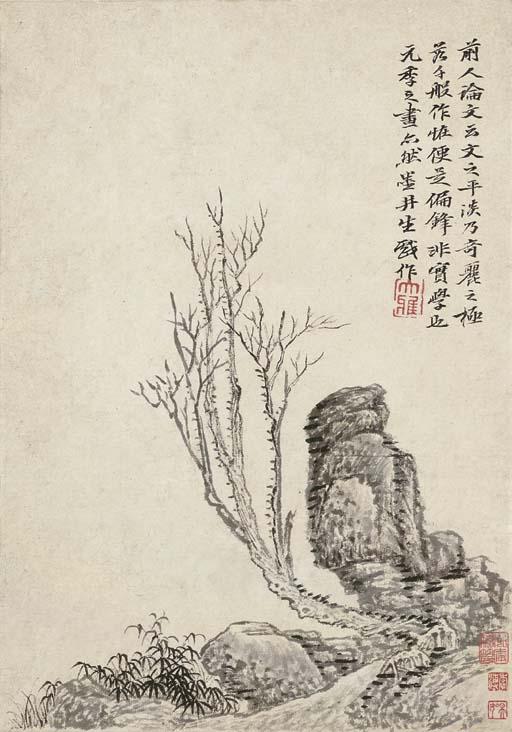 前人論文云文之平淡乃奇麗之極
若千般作恠便是偏鋒非實學也
元季之畫亦然墨井生戲作
大雅